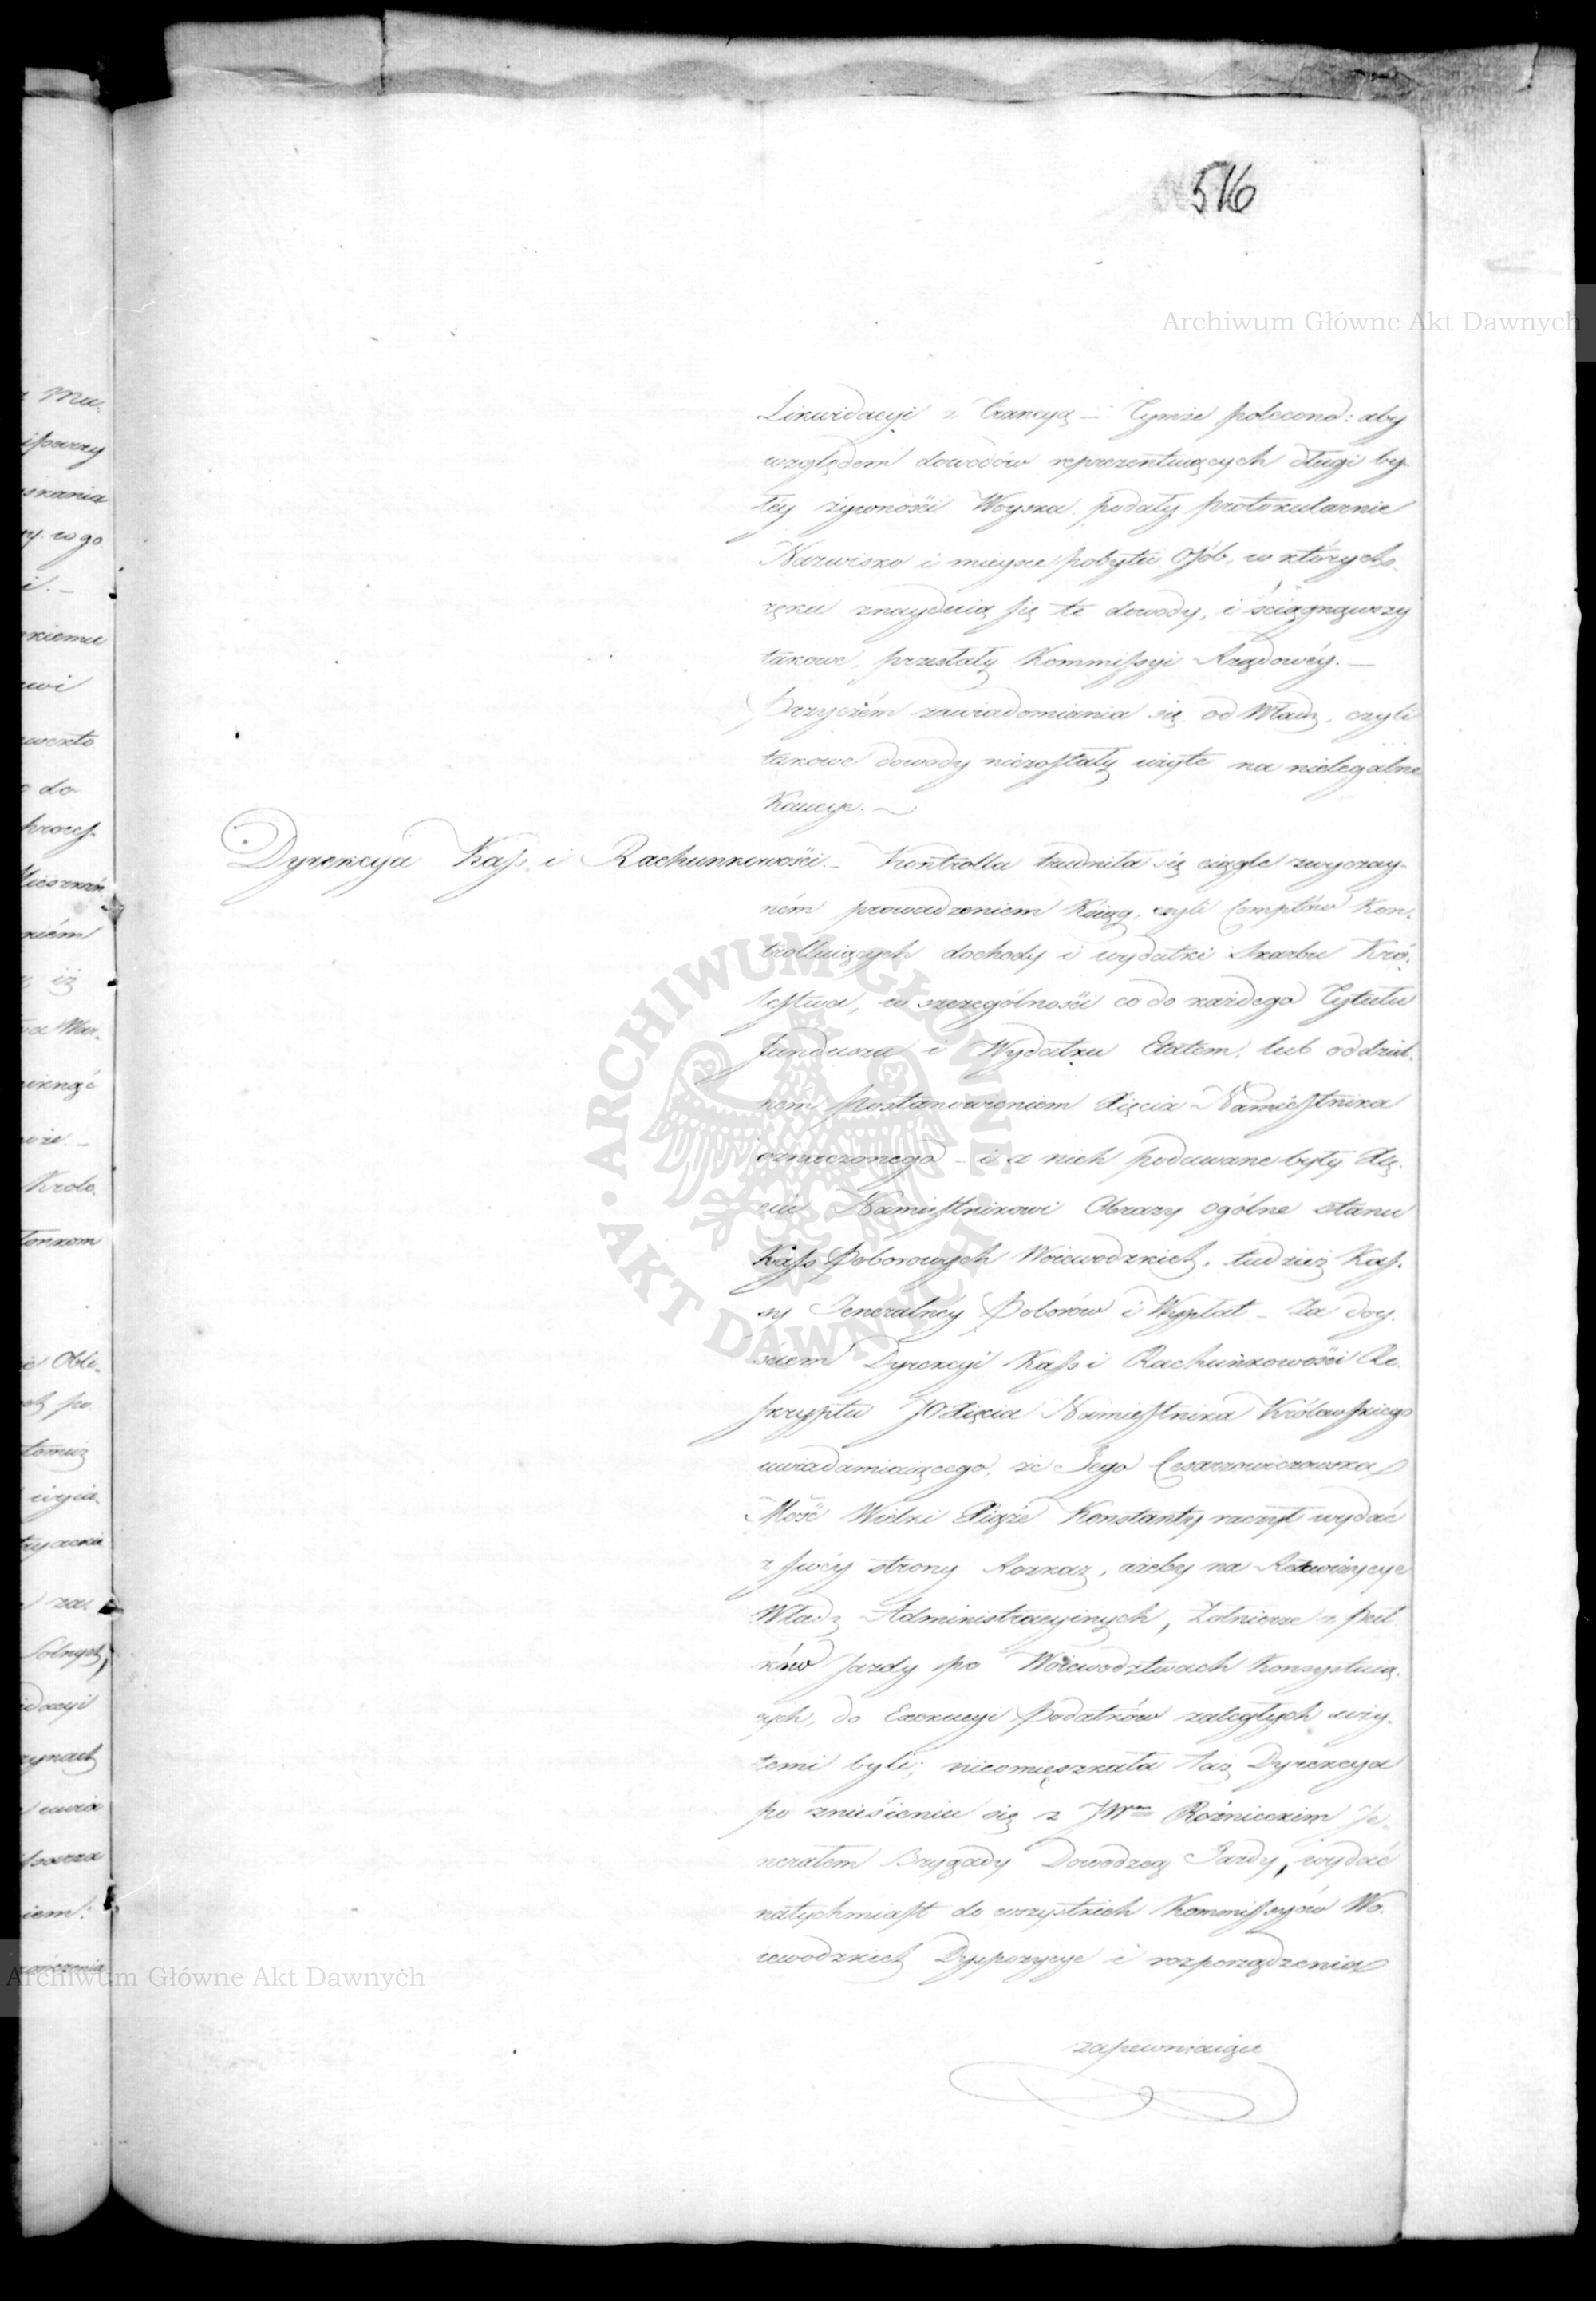 516
Archiwum Główne Akt Dawnych
Likwidacyi z Francyą — Tymże polecono: aby
względem dowodów reprezentuiących długi by-
łéy żywności Woyska, podały protokularnie
Nazwisko i mieysce pobytu Osób, w których
ręku znayduią się te dowody, i ściągnąwszy
takowe, przesłały Kommissyi Rządowéy. —
Przyczém zawiadomiania się od Władz, czyli
takowe dowody niezostały użyte na nielegalne
Kaucye. —
Dyrekcya Kass i Rachunkowości. — Kontrolla trudniła się ciągle zwyczay-
ném prowadzeniem Ksiąg, czyli Comptów Kon-
trolluiących dochody i wydatki Skarbu Kró-
lestwa, w szczególności co do każdego Tytułu
funduszu i Wydatku Etatem, lub oddziel-
nem postanowieniem Xięcia Namiestnika
oznaczonego — i z nich podawane były Xię-
ciu Namiestnikowi Obrazy ogólne stanu
Kass Poborowych Woiewodzkich, tudzież Kas-
sy Jeneralnéy Poborów i Wypłat — Za doy-
ściem Dyrekcyi Kass i Rachunkowości Re-
skryptu JO Xięcia Namiestnika Królewskiego
uwiadamiaiącego, że Jego Cesarzowiczowska
Mość Wielki Xiąże Konstanty raczył wydać
z swéy strony Rozkaz, ażeby na Rekwizycye
Władz Administracyinych, Żołnierze z Puł-
ków Jazdy po Woiewodztwach Konsystuią-
cych, do Exekucyi Podatków zaległych uży-
temi byli; nieomięszkała taż Dyrekcya
po zniesieniu się z JWm Rożnieckim Je-
nerałem Brygady Dowodzcą Jazdy, wydać
natychmiast do wszystkich Kommissyów Wo-
iewodzkich Dyspozycye i rozporządzenia
zapewniaiące
ARCHIWUM GŁÓWNE AKT DAWNYCH
Archiwum Główne Akt Dawnych